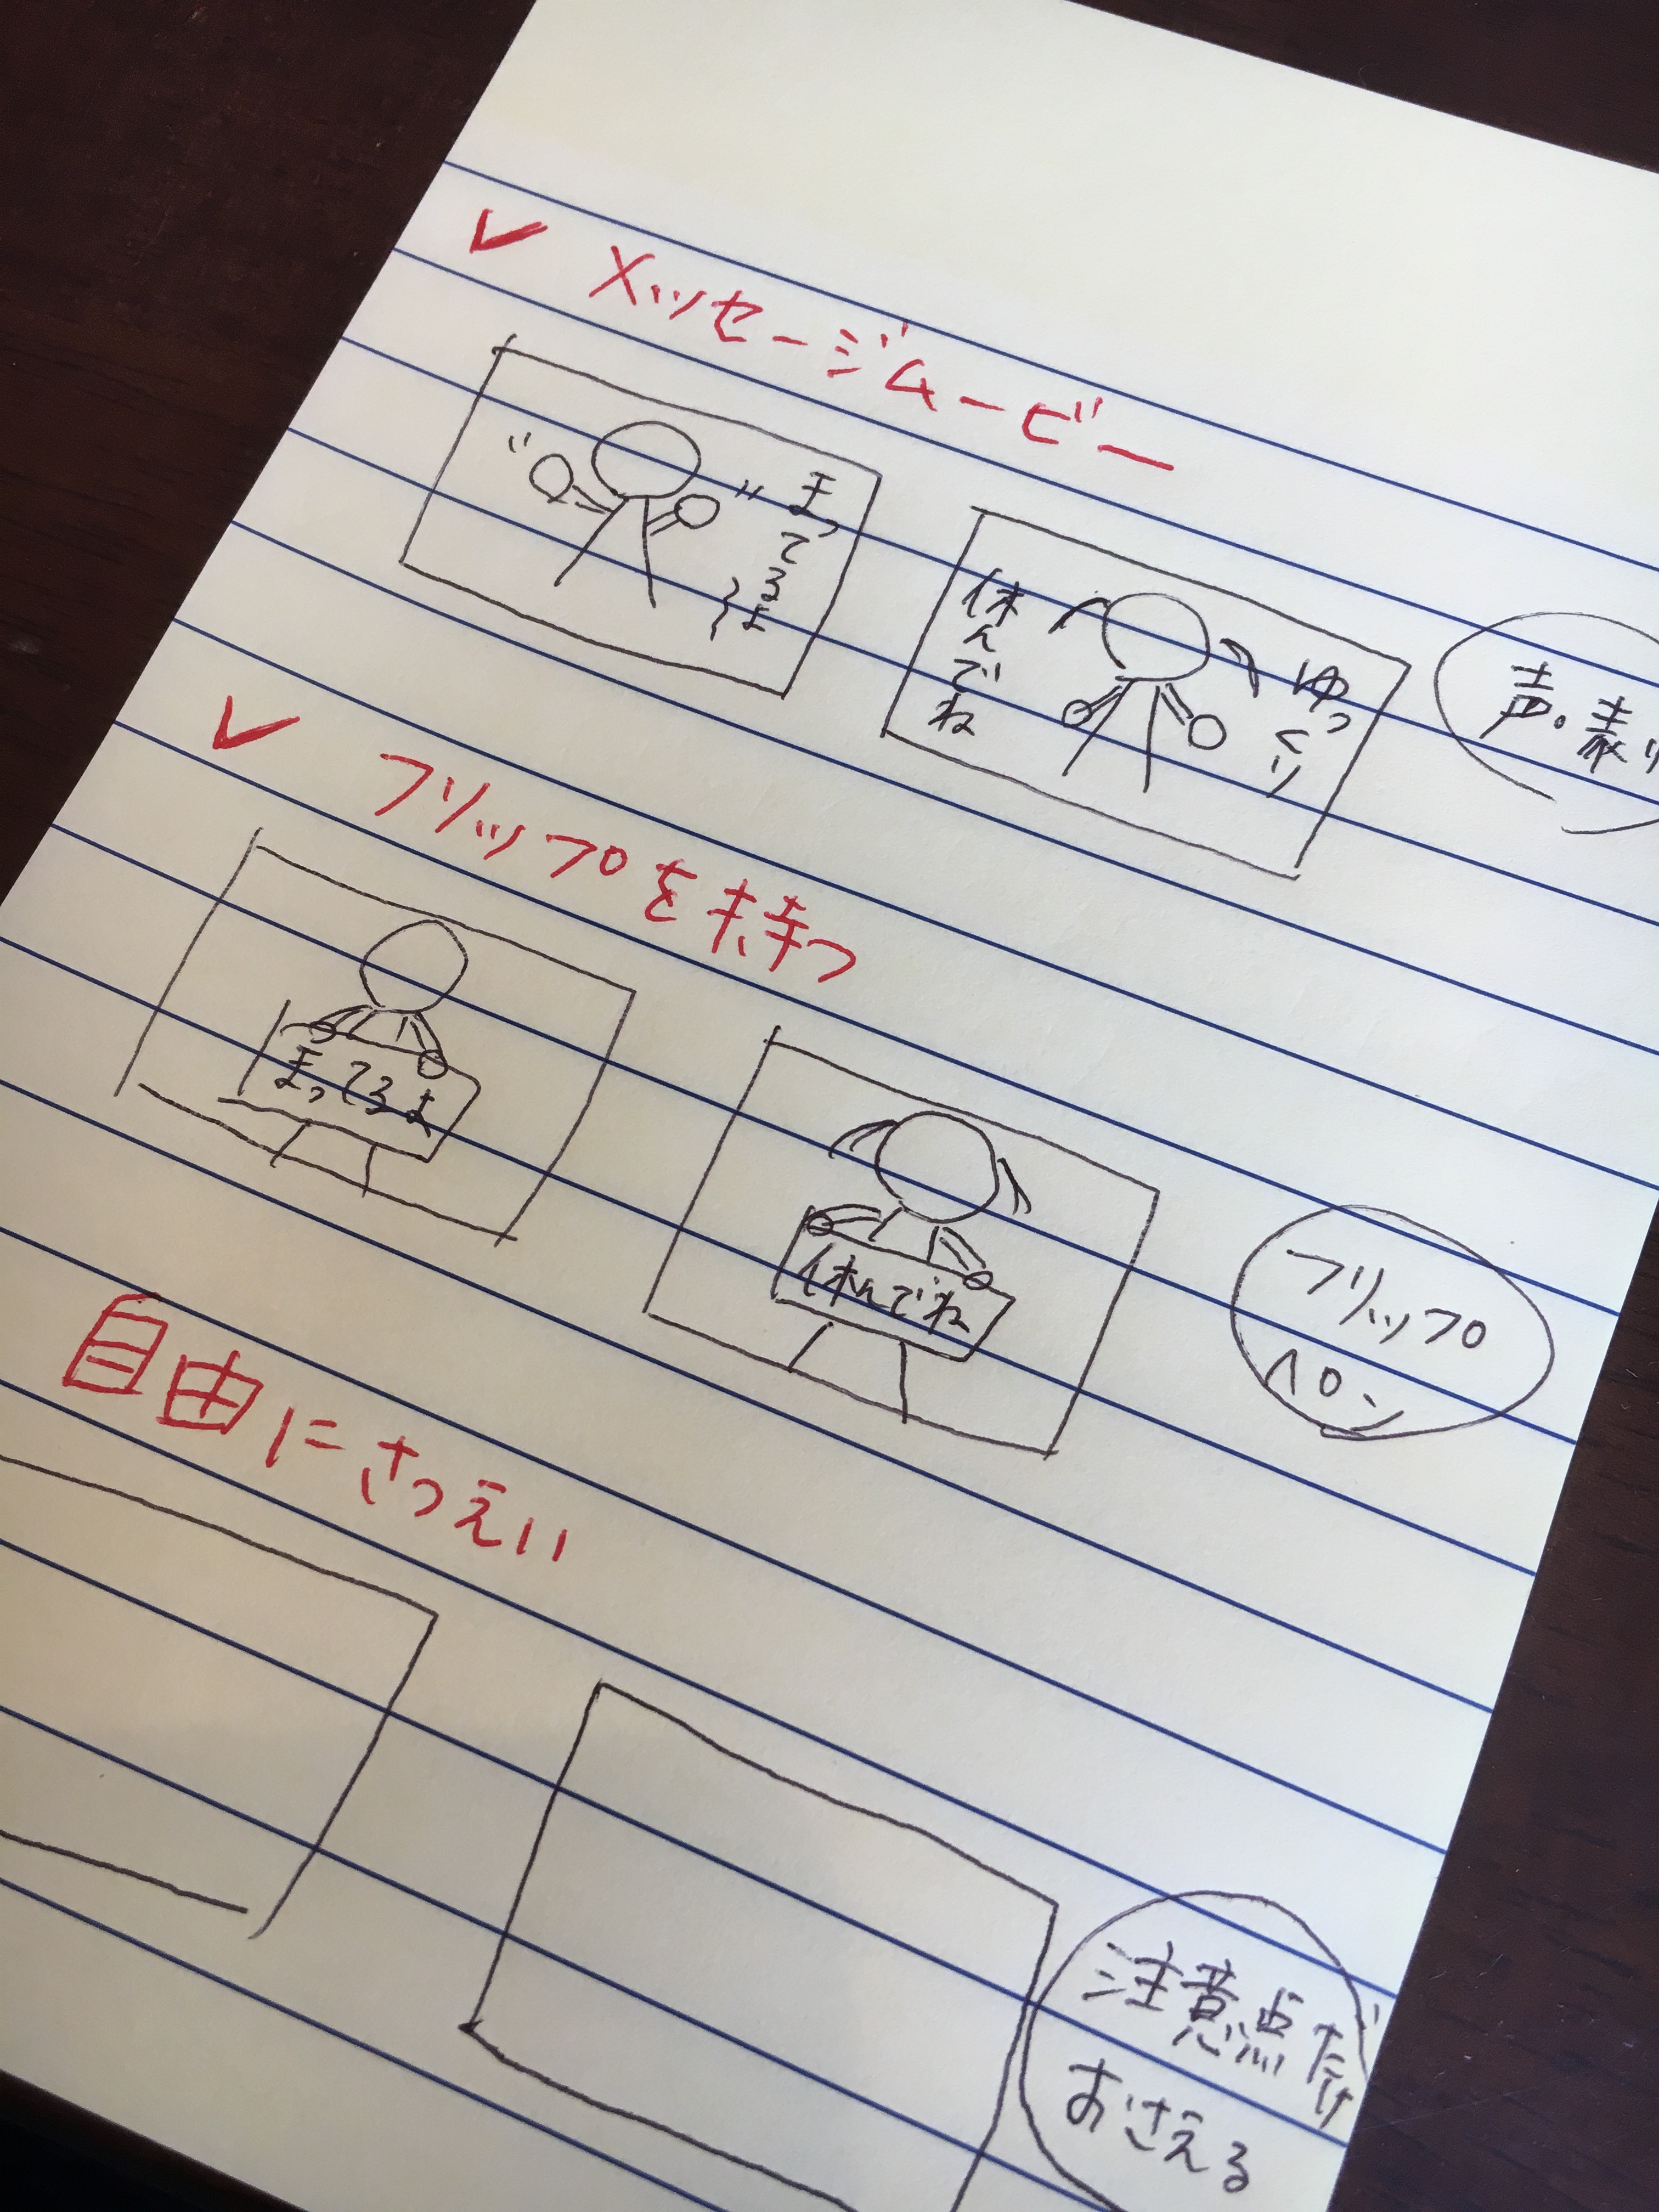 ✓ メッセージムービー
まってるよ〜
ゆっくり
休んでね
声。表
✓ フリップを持つ
まってるよ
休んでね
フリップ
ペン
自由にさつえい
注意点だけ
おさえる